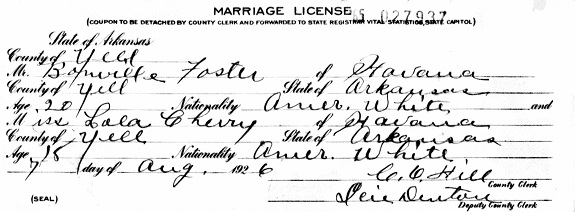 MARRIAGE LICENSE
85 027937
(COUPON TO BE DETACHED BY COUNTY CLERK AND FORWARDED TO STATE REGISTRAR VITAL STATISTICS, STATE CAPITOL)
State of Arkansas
County of Yell
Mr. Bonville Foster of Havana
County of Yell State of Arkansas
Age 20 Nationality Amer. White and
Miss Lola Cherry of Havana
County of Yell State of Arkansas
Age 18 Nationality Amer. White
7 day of Aug. 1926 C. C. Hill
County Clerk
(SEAL) Denton
Deputy County Clerk